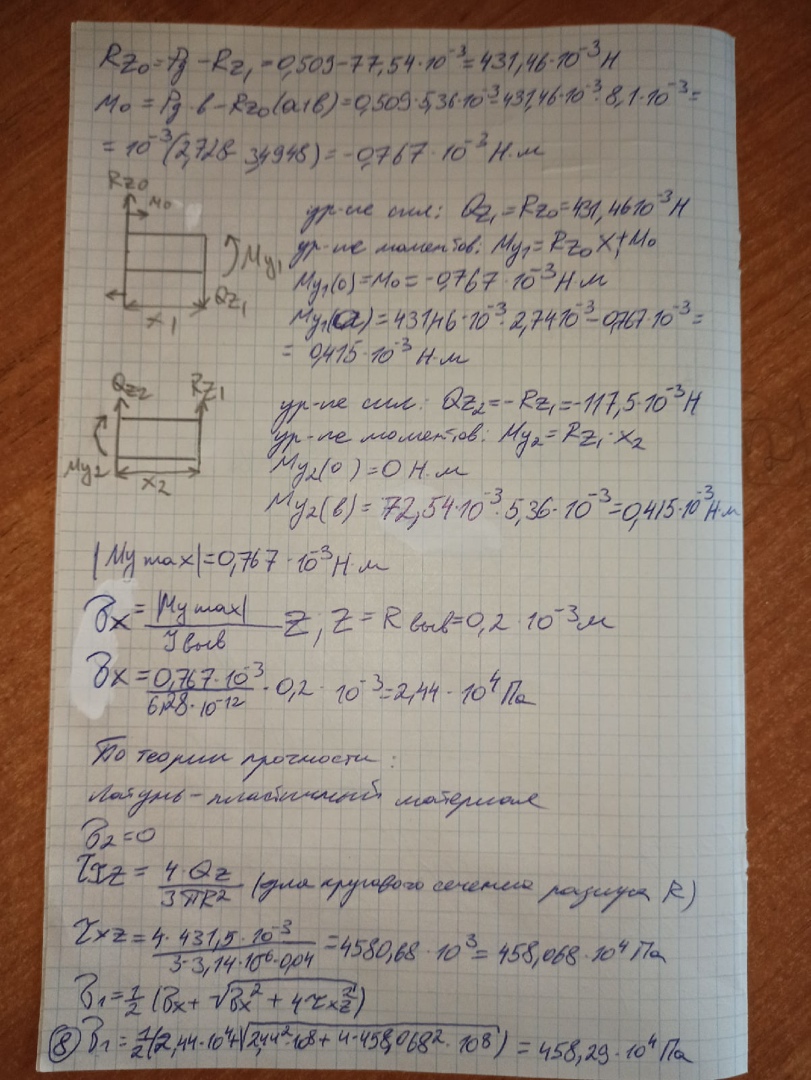 Rz₀ = Pg − Rz₁ = 0,509 − 77,54·10⁻³ = 431,46·10⁻³ Н
M₀ = Pg·в − Rz₀(а+в) = 0,509·5,36·10⁻³ − 431,46·10⁻³·8,1·10⁻³ =
= 10⁻³(2,728 − 3,4948) = −0,767·10⁻³ Н·м
Rz₀
M₀
My₁
Qz₁
x₁
ур-ие сил: Qz₁ = Rz₀ = 431,46·10⁻³ Н
ур-ие моментов: My₁ = Rz₀ x₁ + M₀
My₁(0) = M₀ = −0,767·10⁻³ Н·м
My₁(а) = 431,46·10⁻³·2,74·10⁻³ − 0,767·10⁻³ =
= 0,415·10⁻³ Н·м
Qz₂ Rz₁
My₂
x₂
ур-ие сил: Qz₂ = −Rz₁ = −117,5·10⁻³ Н
ур-ие моментов: My₂ = Rz₁·x₂
My₂(0) = 0 Н·м
My₂(в) = 72,54·10⁻³·5,36·10⁻³ = 0,415·10⁻³ Н·м
|My max| = 0,767·10⁻³ Н·м
σx = |My max| / Jвыв Z; Z = Rвыв = 0,2·10⁻³ м
σx = 0,767·10⁻³ / 6,28·10⁻¹² · 0,2·10⁻³ = 2,44·10⁴ Па
По теории прочности:
Латунь – пластичный материал
σ₂ = 0
τxz = 4·Qz / 3πR² (для кругового сечения радиуса R)
τxz = 4·431,5·10⁻³ / 3·3,14·10⁻⁶·0,04 = 4580,68·10³ = 458,068·10⁴ Па
σ₁ = ½(σx + √(σx² + 4τxz²))
⑧ σ₁ = ½(2,44·10⁴ + √(2,44²·10⁸ + 4·458,068²·10⁸)) = 458,29·10⁴ Па